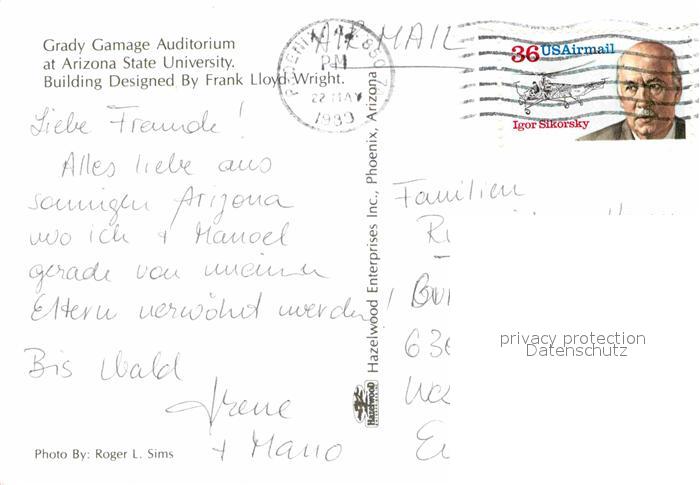 Grady Gamage Auditorium
at Arizona State University.
Building Designed By Frank Lloyd Wright.
AIR MAIL
PHOENIX
PM
22 MAY
1989
36 USAirmail
Igor Sikorsky
Liebe Freunde!
Alles liebe aus
sonnigen Arizona
wo ich + Manoel
gerade von meinen
Eltern verwöhnt werden!
Bis bald
Irene
+ Mano
Photo By: Roger L. Sims
Hazelwood Enterprises Inc., Phoenix, Arizona
Hazelwood
Familien
636
privacy protection
Datenschutz